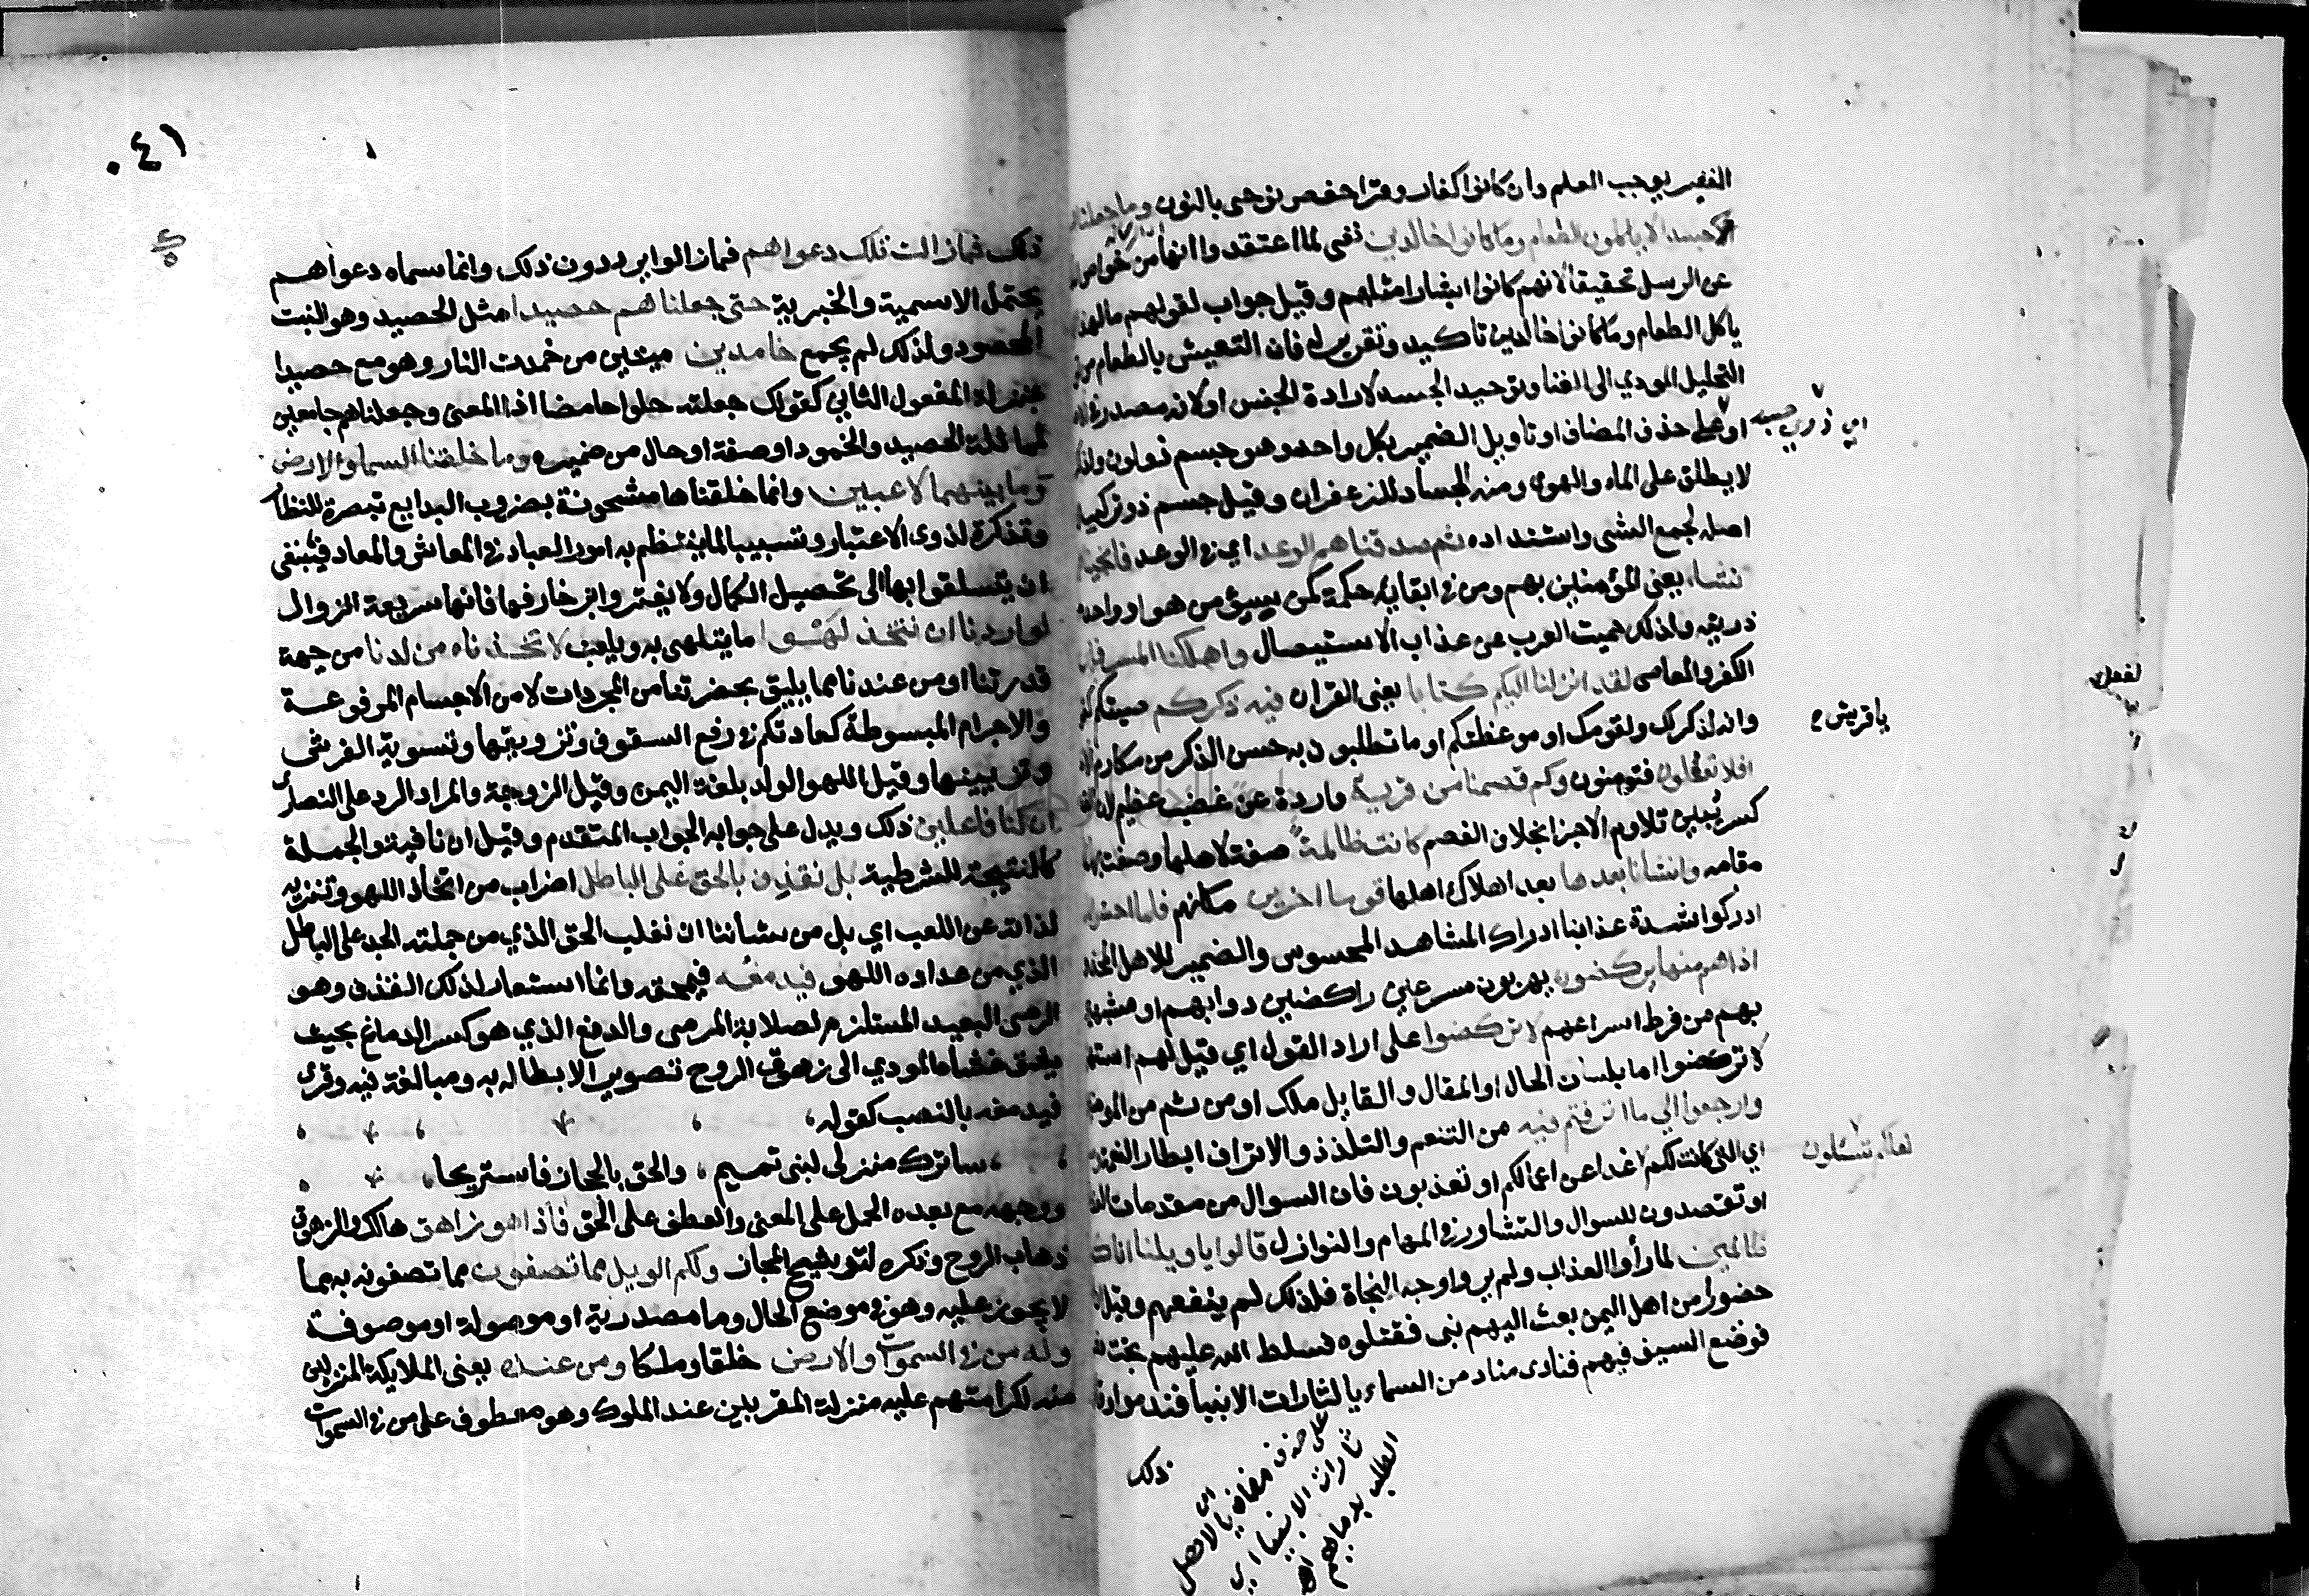 الغفير يوجب العلم وان كانوا كفارا وقرا حفص نوحي بالنون وما جعلناهم
جسدا لا ياكلون الطعام وما كانوا خالدين نفي لما اعتقدوا انها من خواص
عن الرسل تحقيقا لانهم كانوا ابشارا مثلهم وقيل جواب لقولهم مالهذا
ياكل الطعام وما كانوا خالدين تاكيد وتقرير له فان التعيش بالطعام من
التحليل المودي الى الفنا وتوحيد الجسد لارادة الجنس او لانه مصدر في
او على حذف المضاف او تاويل الضمير بكل واحد وهو جسم ذو لون ولذلك
اي ذوي جسد
لا يطلق على الماء والهوى ومنه الجساد للزعفران وقيل جسم ذو تركيب
اصله لجمع الشى واشتداده ثم صدقناهم الوعد اي في الوعد فانجيناهم
نشا يعنى المؤمنين بهم ومن في ابقايه حكمة كمن سيؤمن هو او واحد
ذريته ولذلك حميت العرب عن عذاب الاستيصال واهلكنا المسرفين
الكفر والمعاصى لقد انزلنا اليكم كتابا يعنى القران فيه ذكركم صيتكم
يا قريش
وانه لذكر لك ولقومك او موعظتكم او ما تطلبون به حسن الذكر من مكارم
افلا تعقلون فتومنون وكم قصمنا من قرية واردة عن غضب عظيم لان
كسر يبين تلاوم الاجزا بخلاف الفصم كانت ظالمة صفة لاهلها وصفت بها
مقامه وانشانا بعدها بعد اهلاك اهلها قوما اخرين مكانهم فلما احسوا
ادركوا شدة عذابنا ادراك المشاهد المحسوس والضمير للاهل المحذوف
اذا هم منها يركضون يهربون مسرعين راكضين دوابهم او مشبهين
بهم من فرط اسراعهم لا تركضوا على اراد القول اي قيل لهم استهزا
لا تركضوا اما بلسان الحال او المقال والقايل ملك او من ثم من المومنين
وارجعوا الى ما اترفتم فيه من التنعم والتلذذ والاتراف ابطار النعمة
لعلكم تسئلون
اي التى كانت لكم غدا عن اعمالكم او تعذبون فان السوال من مقدمات
او تقصدون للسوال والتشاور في المهام والنوازل قالوا يا ويلنا انا كنا
ظالمين لما رأوا العذاب ولم يروا وجه النجاة فلذلك لم ينفعهم وقيل
حضورا من اهل اليمن بعث اليهم نبى فقتلوه فسلط الله عليهم بخت
فوضع السيف فيهم فنادى مناد من السماء يا لثارات الانبيا فندموا
ذلك
على حذف مضاف
ثارات الانبيا اي
ذلك فمازالت تلك دعواهم فمازالوا يرددون ذلك وانما سماه دعواهم
يحتمل الاسمية والخبرية حتى جعلناهم حصيدا مثل الحصيد وهو النبت
المحصود ولذلك لم يجمع خامدين ميتين من خمدت النار وهو مع حصيدا
بمنزلة المفعول الثاني كقولك جعلته حلوا حامضا اذ المعنى وجعلناهم جامعين
لمماثلة الحصيد والخمود او صفة او حال من ضميره وما خلقنا السما والارض
وما بينهما لاعبين وانما خلقناها مشحونة بضروب البدايع تبصرة للنظار
وتذكرة لذوى الاعتبار وتسبيبا لما ينتظم به امور العباد في المعاش والمعاد فينبغى
ان يتسلقوا بها الى تحصيل الكمال ولا يغتروا بزخارفها فانها سريعة الزوال
لو اردنا ان نتخذ لهوا ما يتلهى به ويلعب لاتخذناه من لدنا من جهة
قدرتنا او من عندنا مما يليق بحضرتنا من المجردات لا من الاجسام المرفوعة
والاجرام المبسوطة كعادتكم في رفع السقوف وتزويقها وتسوية الفرش
وتزيينها وقيل اللهو الولد بلغة اليمن وقيل الزوجة والمراد الرد على النصارى
ان كنا فاعلين ذلك ويدل على جوابه الجواب المتقدم وقيل ان نافية والجملة
كالنتيجة للشرطية بل نقذف بالحق على الباطل اضراب من اتخاذ اللهو وتنزيه
لذاته عن اللعب اي بل من شأننا ان نغلب الحق الذي من جملته الجد على الباطل
الذي من عداده اللهو فيدمغه فيمحقه وانما استعار لذلك القذف وهو
الرمى البعيد المستلزم لصلابة المرمى والدمغ الذي هو كسر الدماغ بحيث
يشق غشاه المودي الى زهوق الروح تصويرا لابطاله به ومبالغة فيه وقرى
فيدمغه بالنصب كقوله
ساترك منزلى لبنى تميم ، والحق بالحجاز فاستريحا
ووجهه مع بعده الحمل على المعنى والعطف على الحق فاذا هو زاهق هالك والزهوق
ذهاب الروح وذكره لترشيح المجاز ولكم الويل مما تصفون مما تصفونه به مما
لا يجوز عليه وهو في موضع الحال وما مصدرية او موصولة او موصوفة
وله من في السموات والارض خلقا وملكا ومن عنده يعنى الملايكة المنزلين
منه لكرامتهم عليه منزلة المقربين عند الملوك وهو معطوف على من في السموات
٤١